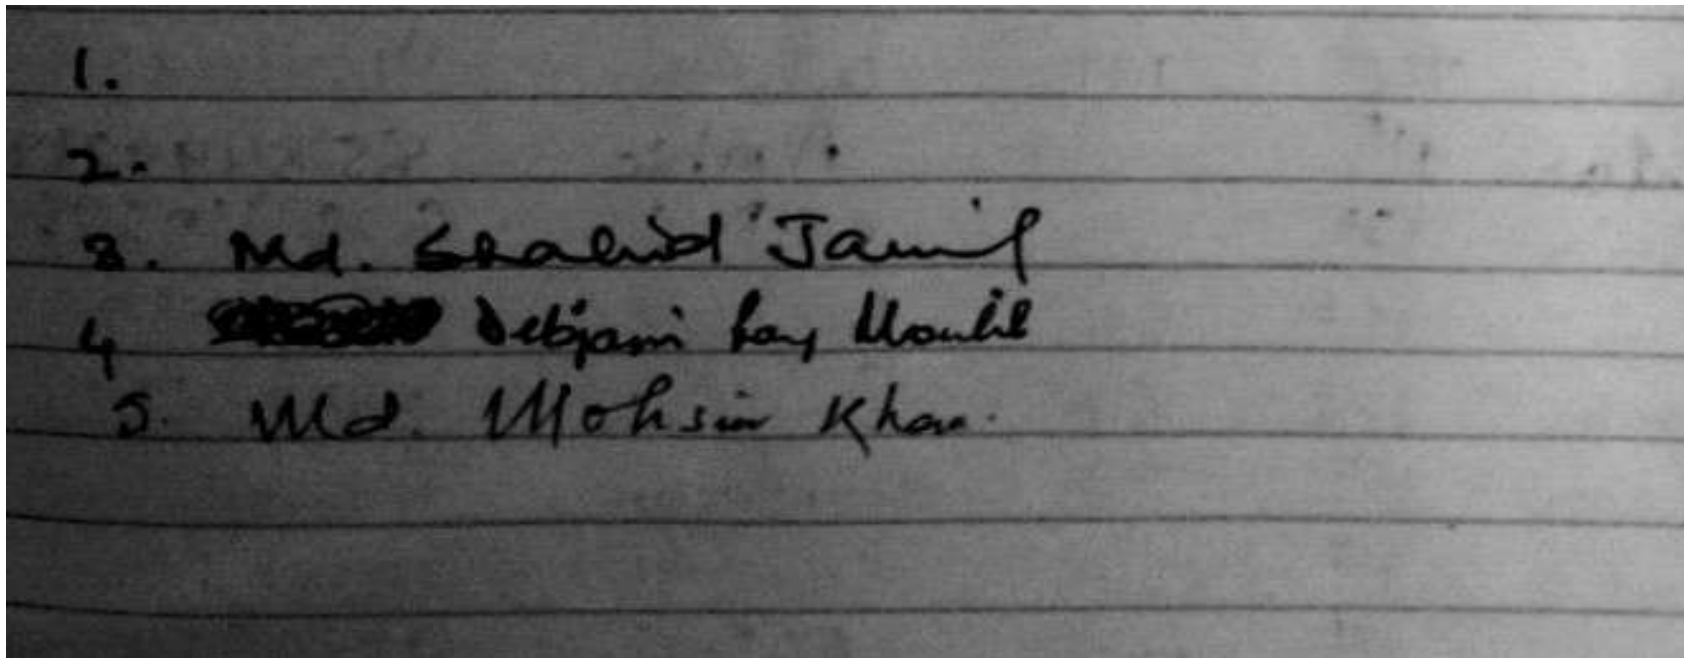 1.
2.
3. Md. Shahid Jamil
4 Debjani
5. Md. Mohsin Khan.